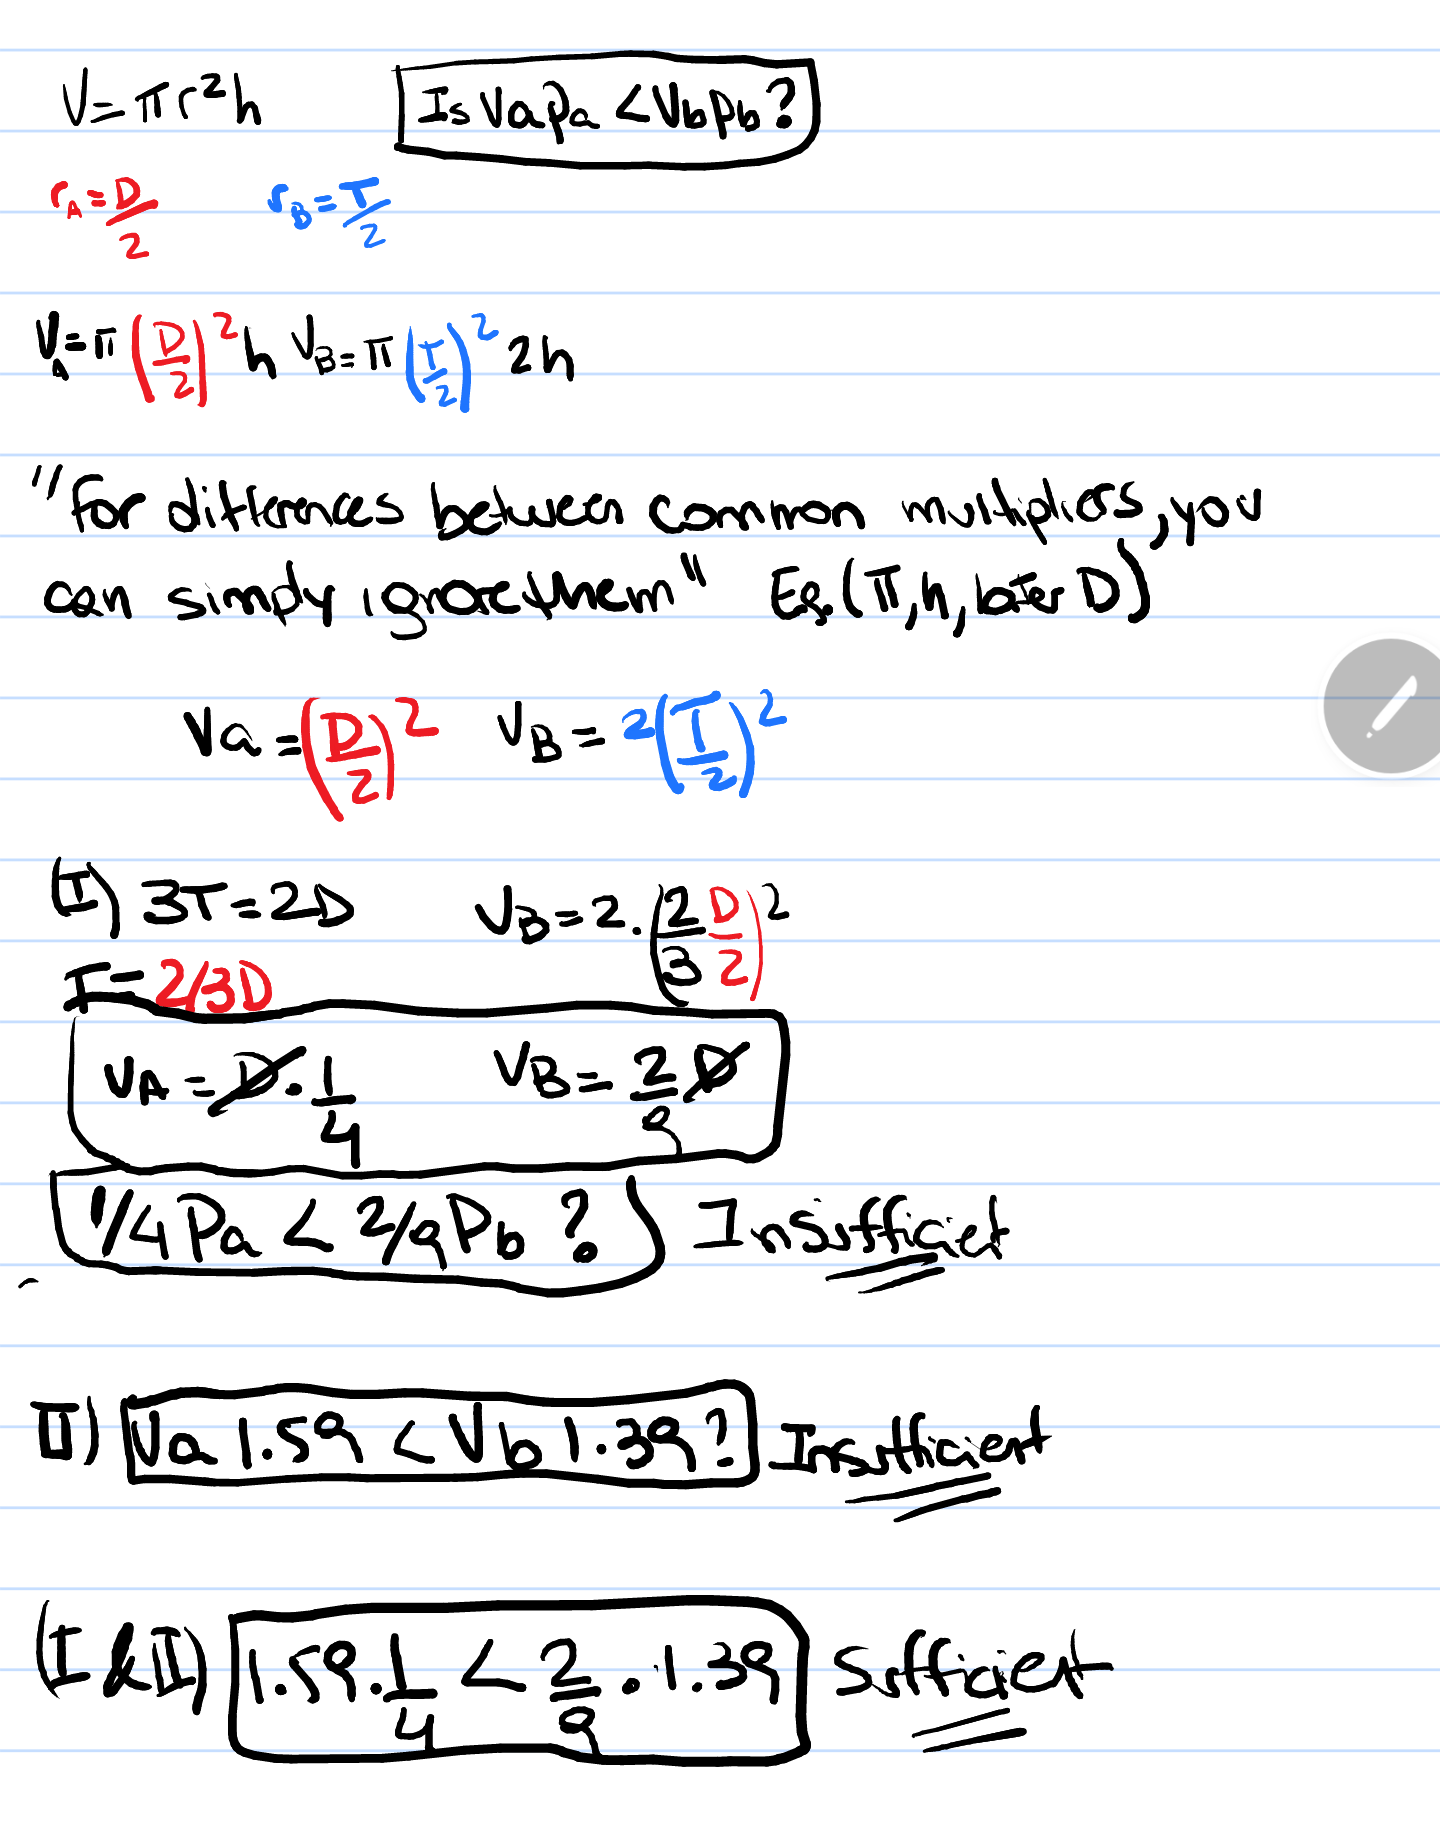 V=πr²h Is VaPa < VbPb?
r_A = D/2 r_B = T/2
V_A = π(D/2)²h V_B = π(T/2)² 2h
"For differences between common multipliers, you
can simply ignore them" Eg. (π, h, later D)
Va = (D/2)² V_B = 2(T/2)²
(I) 3T = 2D V_B = 2·(2/3 D/2)²
T = 2/3D
V_A = D·1/4 V_B = 2/9 D
1/4 Pa < 2/9 Pb? Insufficiet
II) Va 1.59 < Vb 1.39? Insufficient
(I & II) 1.59·1/4 < 2/9·1.39 Sufficient